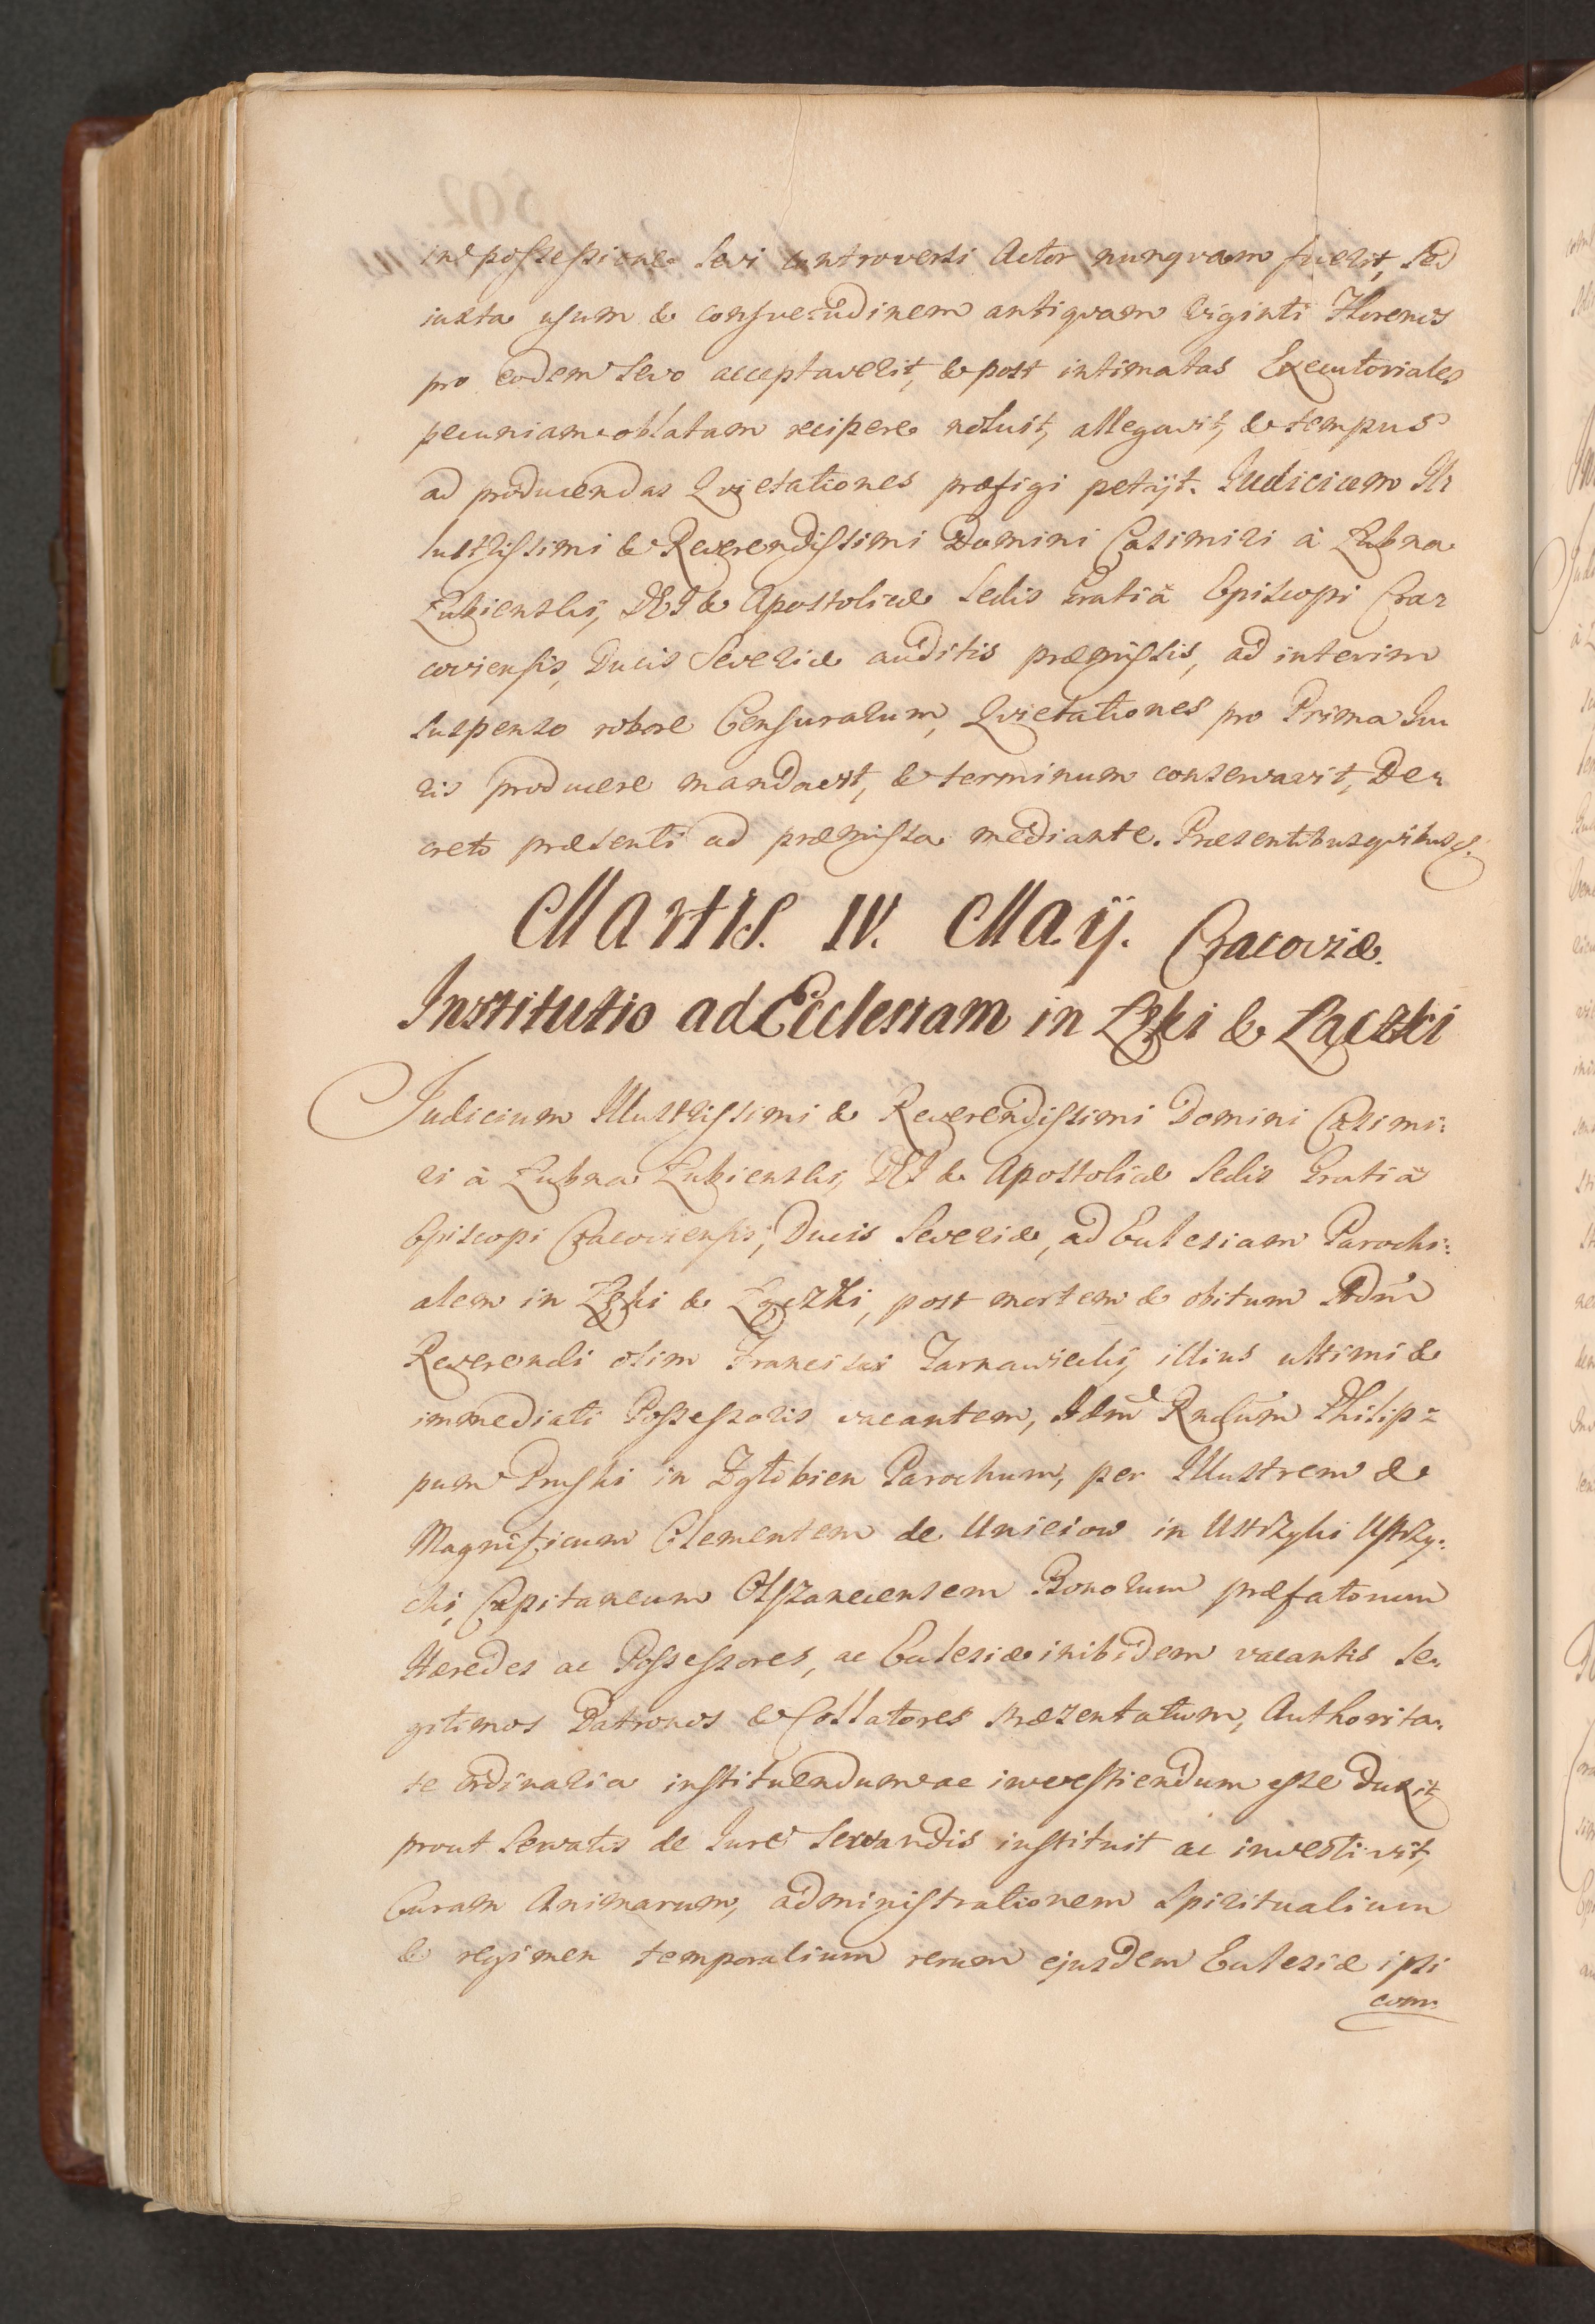 in possessione sevi controversi Actor nunqvam fuerit, sed
iuxta usum & consvetudinem antiqvam viginti Florenos
pro eodem sevo acceptaverit, & post intimatas Executoriales
pecuniam oblatam recipere noluit, allegavit, & tempus
ad producendas Qvietationes præfigi petijt. Iudicium Il-
lustrissimi & Reverendissimi Domini Casimiri à Łubna
Łubienski, DEI & Apostolicæ Sedis Gratiâ Episcopi Cra-
coviensis, Ducis Severiæ auditis præmissis, ad interim
suspenso robore Censurarum, Qvietationes pro Prima Iu-
ris producere mandavit, & terminum conservavit, De-
creto præsenti ad præmissa mediante. Præsentibus qvibus &.
Martis. IV. Maij. Cracoviæ.
Institutio ad Ecclesiam in Łęki & Łączki
Iudicium Illustrissimi & Reverendissimi Domini Casimi-
ri à Łubna Łubienski, DEI & Apostolicæ Sedis Gratiâ
Episcopi Cracoviensis, Ducis Severiæ, ad Eclesiam Parochi-
alem in Łęki & Łączki, post mortem & obitum Adm̃
Reverendi olim Francisci Tarnawiecki, illius ultimi &
immediati Possessoris vacantem, Adm̃ Rndum Philip-
pum Pruski in Zgłobien Parochum, per Illustrem &
Magnificum Clementem de Unieiow in Ustrzyki Ustrzy-
cki, Capitaneum Olszanecensem Bonorum præfatorum
Hæredes ac Possessores, ac Eclesiæ inibidem vacantis le-
gitimos Patronos & Collatores præzentatum, Authorita-
te ordinaria instituendum ac investiendum esse duxit
prout servatis de Iure servandis instituit ac investivit,
Curam Animarum, administrationem spiritualium
& regimen temporalium rerum ejusdem Eclesiæ ipsi
com-